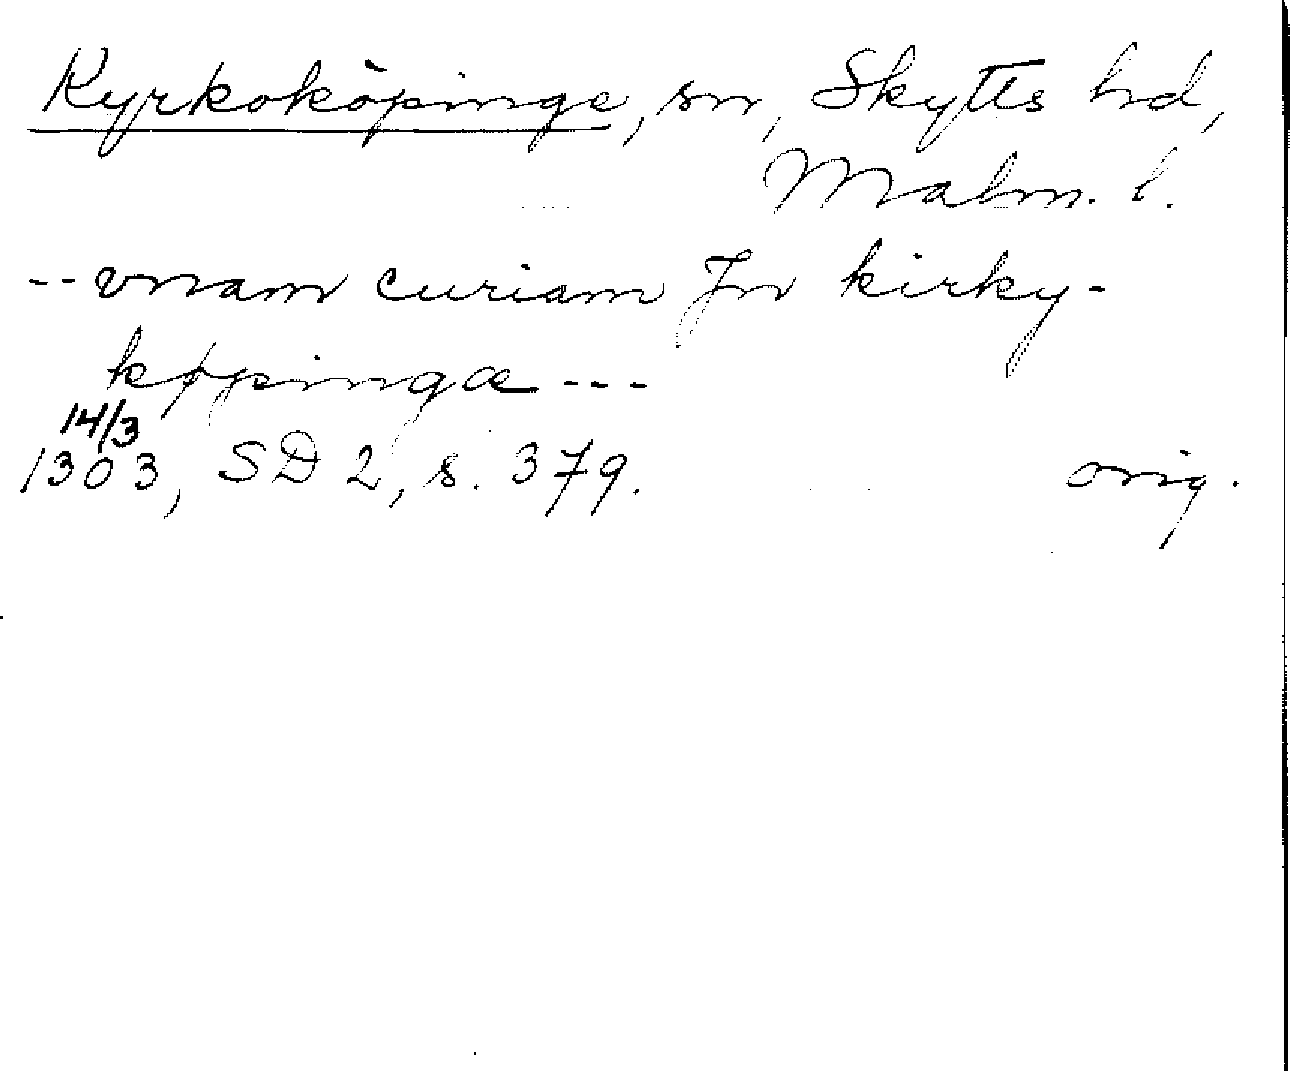 Kyrkoköpinge, sn, Skytts hd,
Malm. l.
-- vnam curiam Jn kirky-
køpingæ ---
14/3
1303, SD 2, s. 379. orig.